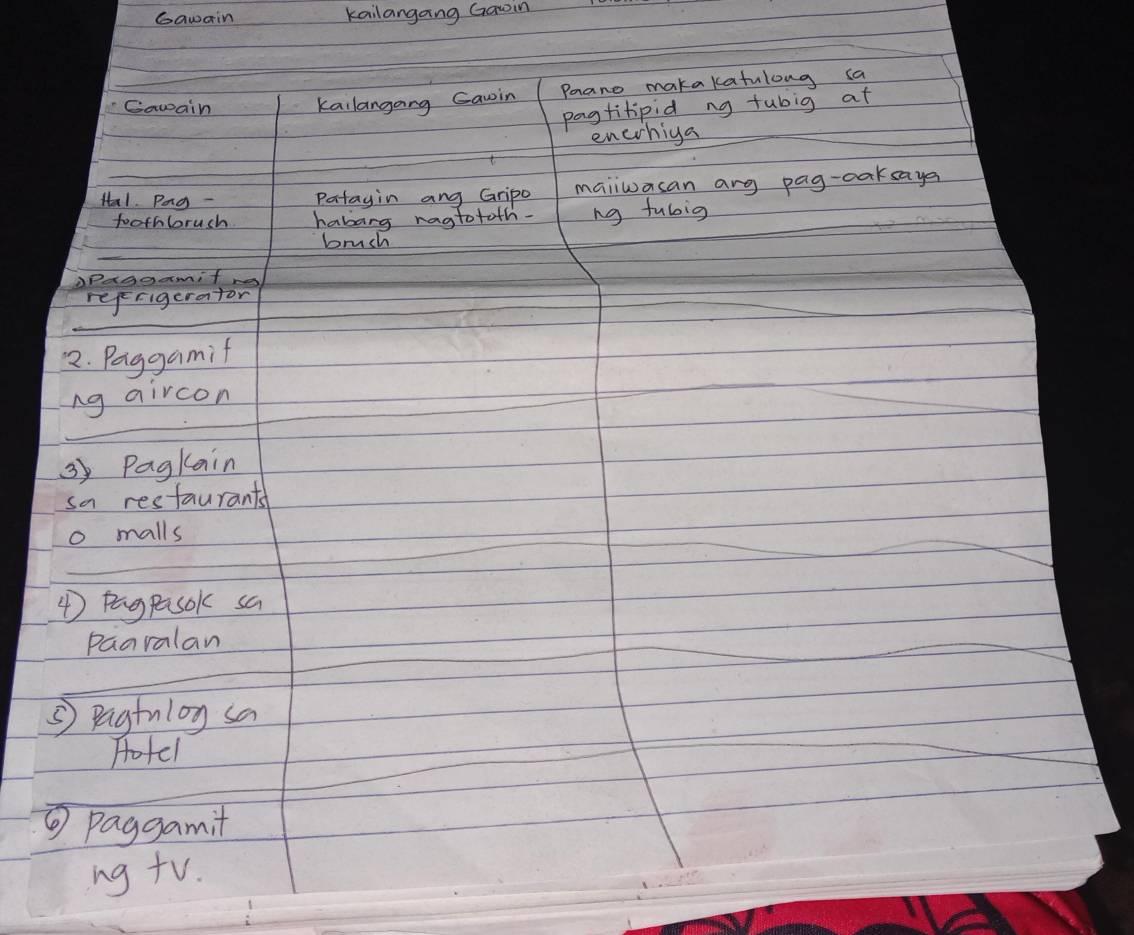 Gawain Kailangang Gawin
Gawain Kailangang Gawin Paano makakatulong sa
pagtitipid ng tubig at
enerhiya
Hal. Pag- Patayin ang Gripo maiiwasan ang pag-aaksaya
toothbrush habang nagtototh- ng tubig
brush
1) Paggamit ng
refrigerator
2. Paggamit
ng aircon
3) Pagkain
sa restaurants
o malls
4) Pagpasok sa
Paaralan
5) Pagtulog sa
Hotel
6) Paggamit
ng tv.